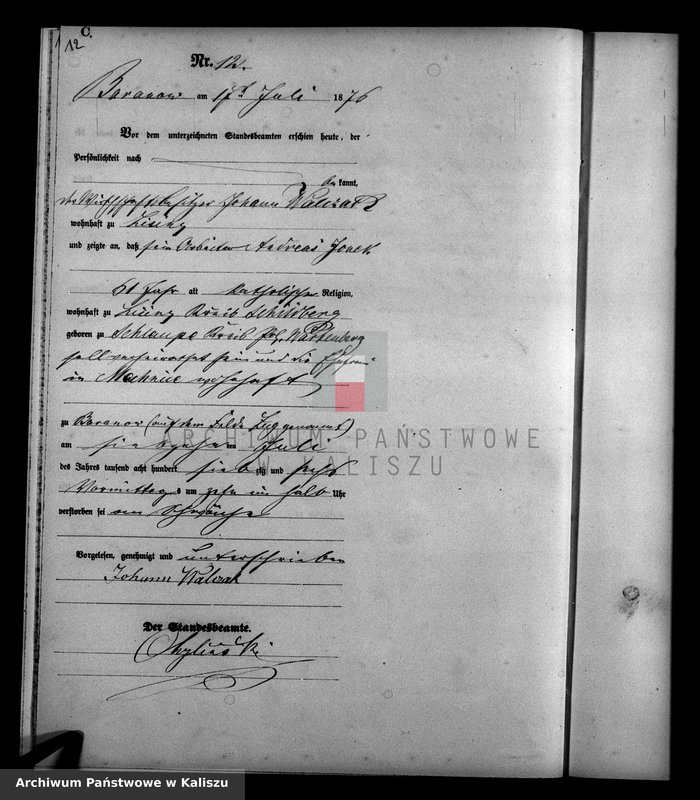 C.
12
Nr. 12.
Baranow am 17ten Juli 1876
Vor dem unterzeichneten Standesbeamten erschien heute, der
Persönlichkeit nach
be kannt,
der Wirthschaftsbesitzer Johann Walczak
wohnhaft zu
und zeigte an, daß sein Arbeiter Andreas
61 Jahr alt katholischer Religion,
wohnhaft zu Kreis Schildberg
geboren zu Schlaupe Kreis Pol. Wartenberg
soll verheirathet sein und die Ehefrau
in wohnhaft
zu Baranow (auf dem Felde genannt)
am siebzehnten Juli
des Jahres tausend acht hundert siebzig und sechs
Vormittags um zehn ein halb Uhr
verstorben sei an Schwäche
Vorgelesen, genehmigt und unterschrieben
Johann Walczak
Der Standesbeamte.
ARCHIWUM PAŃSTWOWE
W KALISZU
Archiwum Państwowe w Kaliszu